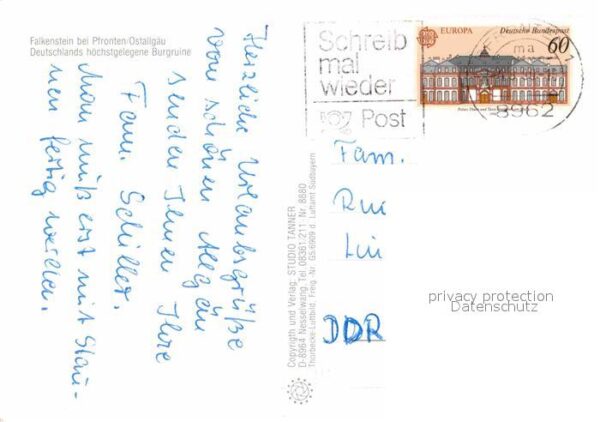 Falkenstein bei Pfronten/Ostallgäu
Deutschlands höchstgelegene Burgruine
Herzliche Urlaubsgrüße
vom schönen Allgäu
senden Ihnen Ihre
Fam. Schiller.
Man muß erst mit Stau-
nen fertig werden.
Copyrigth und Verlag: STUDIO TANNER
D-8964 Nesselwang Tel 08361/211 Nr 8680
Thorbecke-Luftbild, Freig. Nr. G5.6909 d. Luftamt Südbayern
Schreib
mal
wieder
Post
EUROPA
Deutsche Bundespost
60
8962
Fam.
DDR
privacy protection
Datenschutz